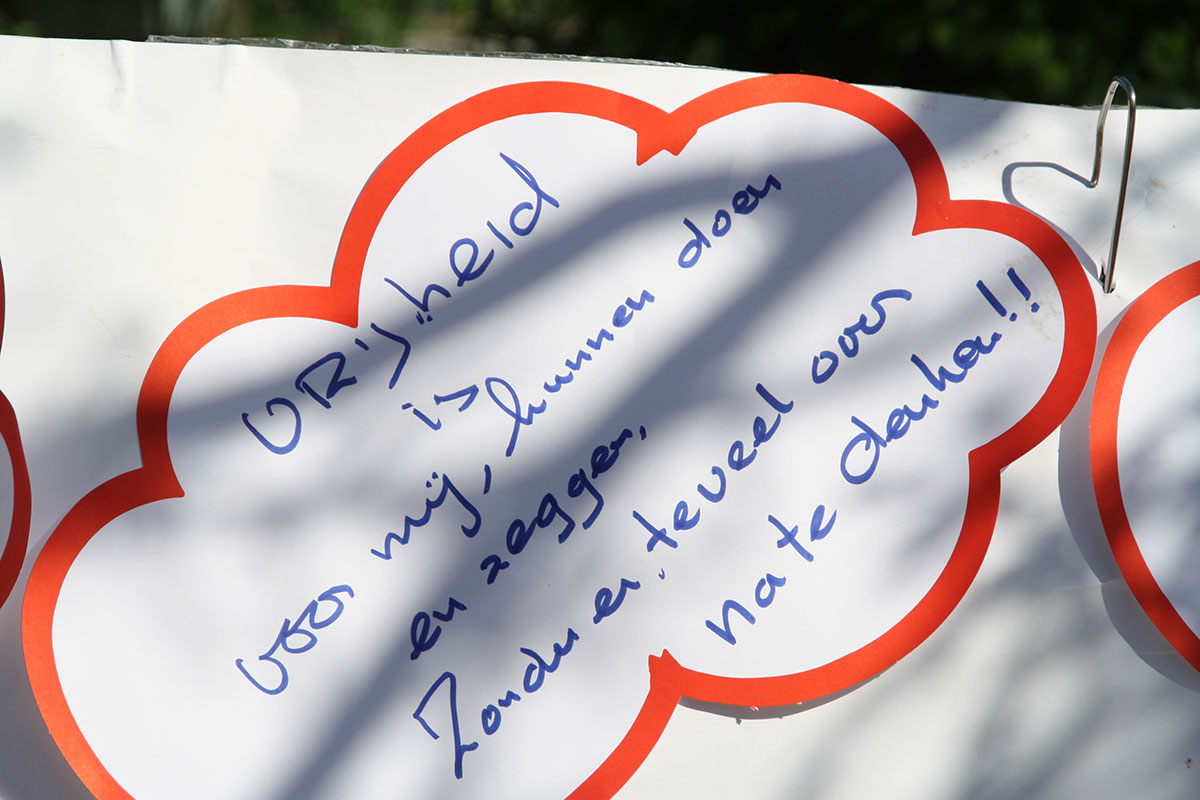 VRijheid
is
voor mij, kunnen doen
en zeggen,
Zonder er, teveel over
na te denken!!